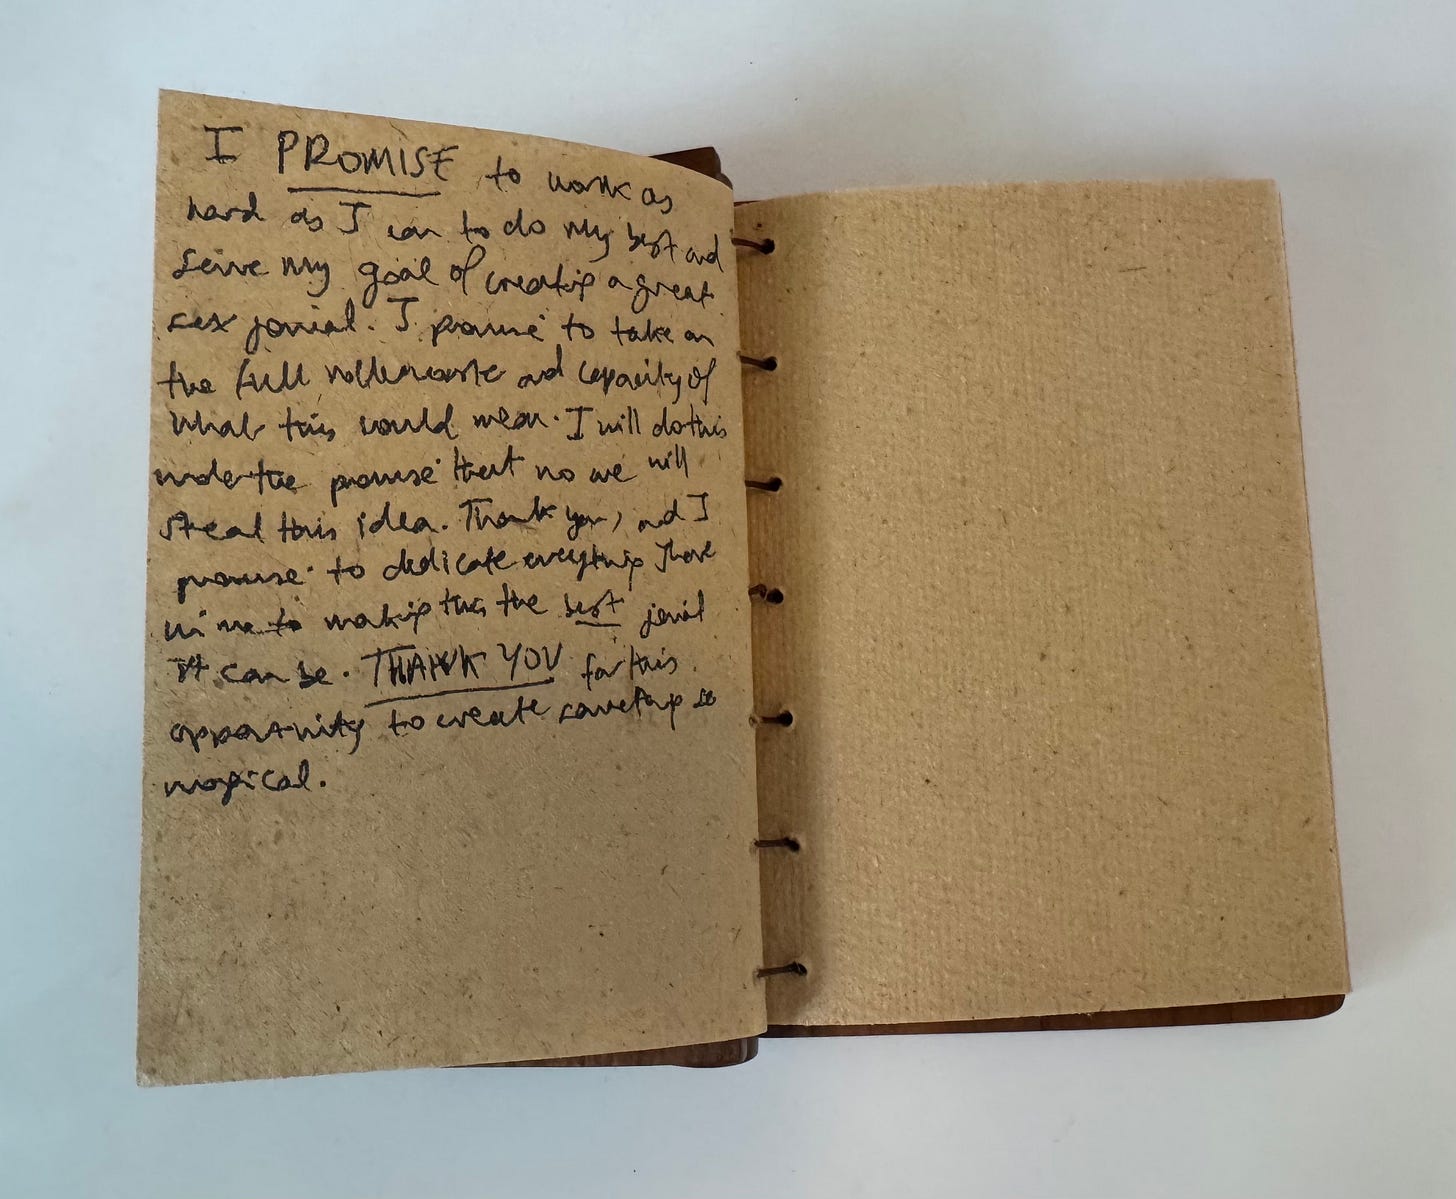 I PROMISE to work as
hard as I can to do my best and
serve my goal of creating a great
sex jonial. I promise to take on
the full and capacity of
what this would mean. I will do this
under the promise that no one will
steal this idea. Thank you, and I
promise to dedicate everything I have
in me to making this the best jonial
it can be. THANK YOU for this
opportunity to create something so
magical.